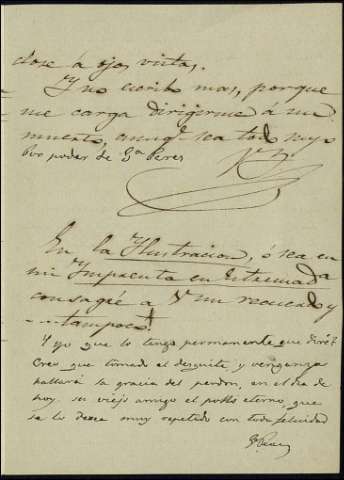 dose á ojos vistas.
Y no escribo mas, porque
me carga dirigirme á un
muerto, aunq.e sea todo suyo
Por poder de G.a Perez
En la Ilustracion, ó sea en
mi Imprenta en
consagré a V un recuerdo y
tampoco!
Y yo que lo tengo permanente que diré?
Creo que tomado el desquite y venganza
hallará la gracia del perdon, en el dia de
hoy. su viejo amigo el pollo eterno, que
se lo desea muy repetido con toda felicidad